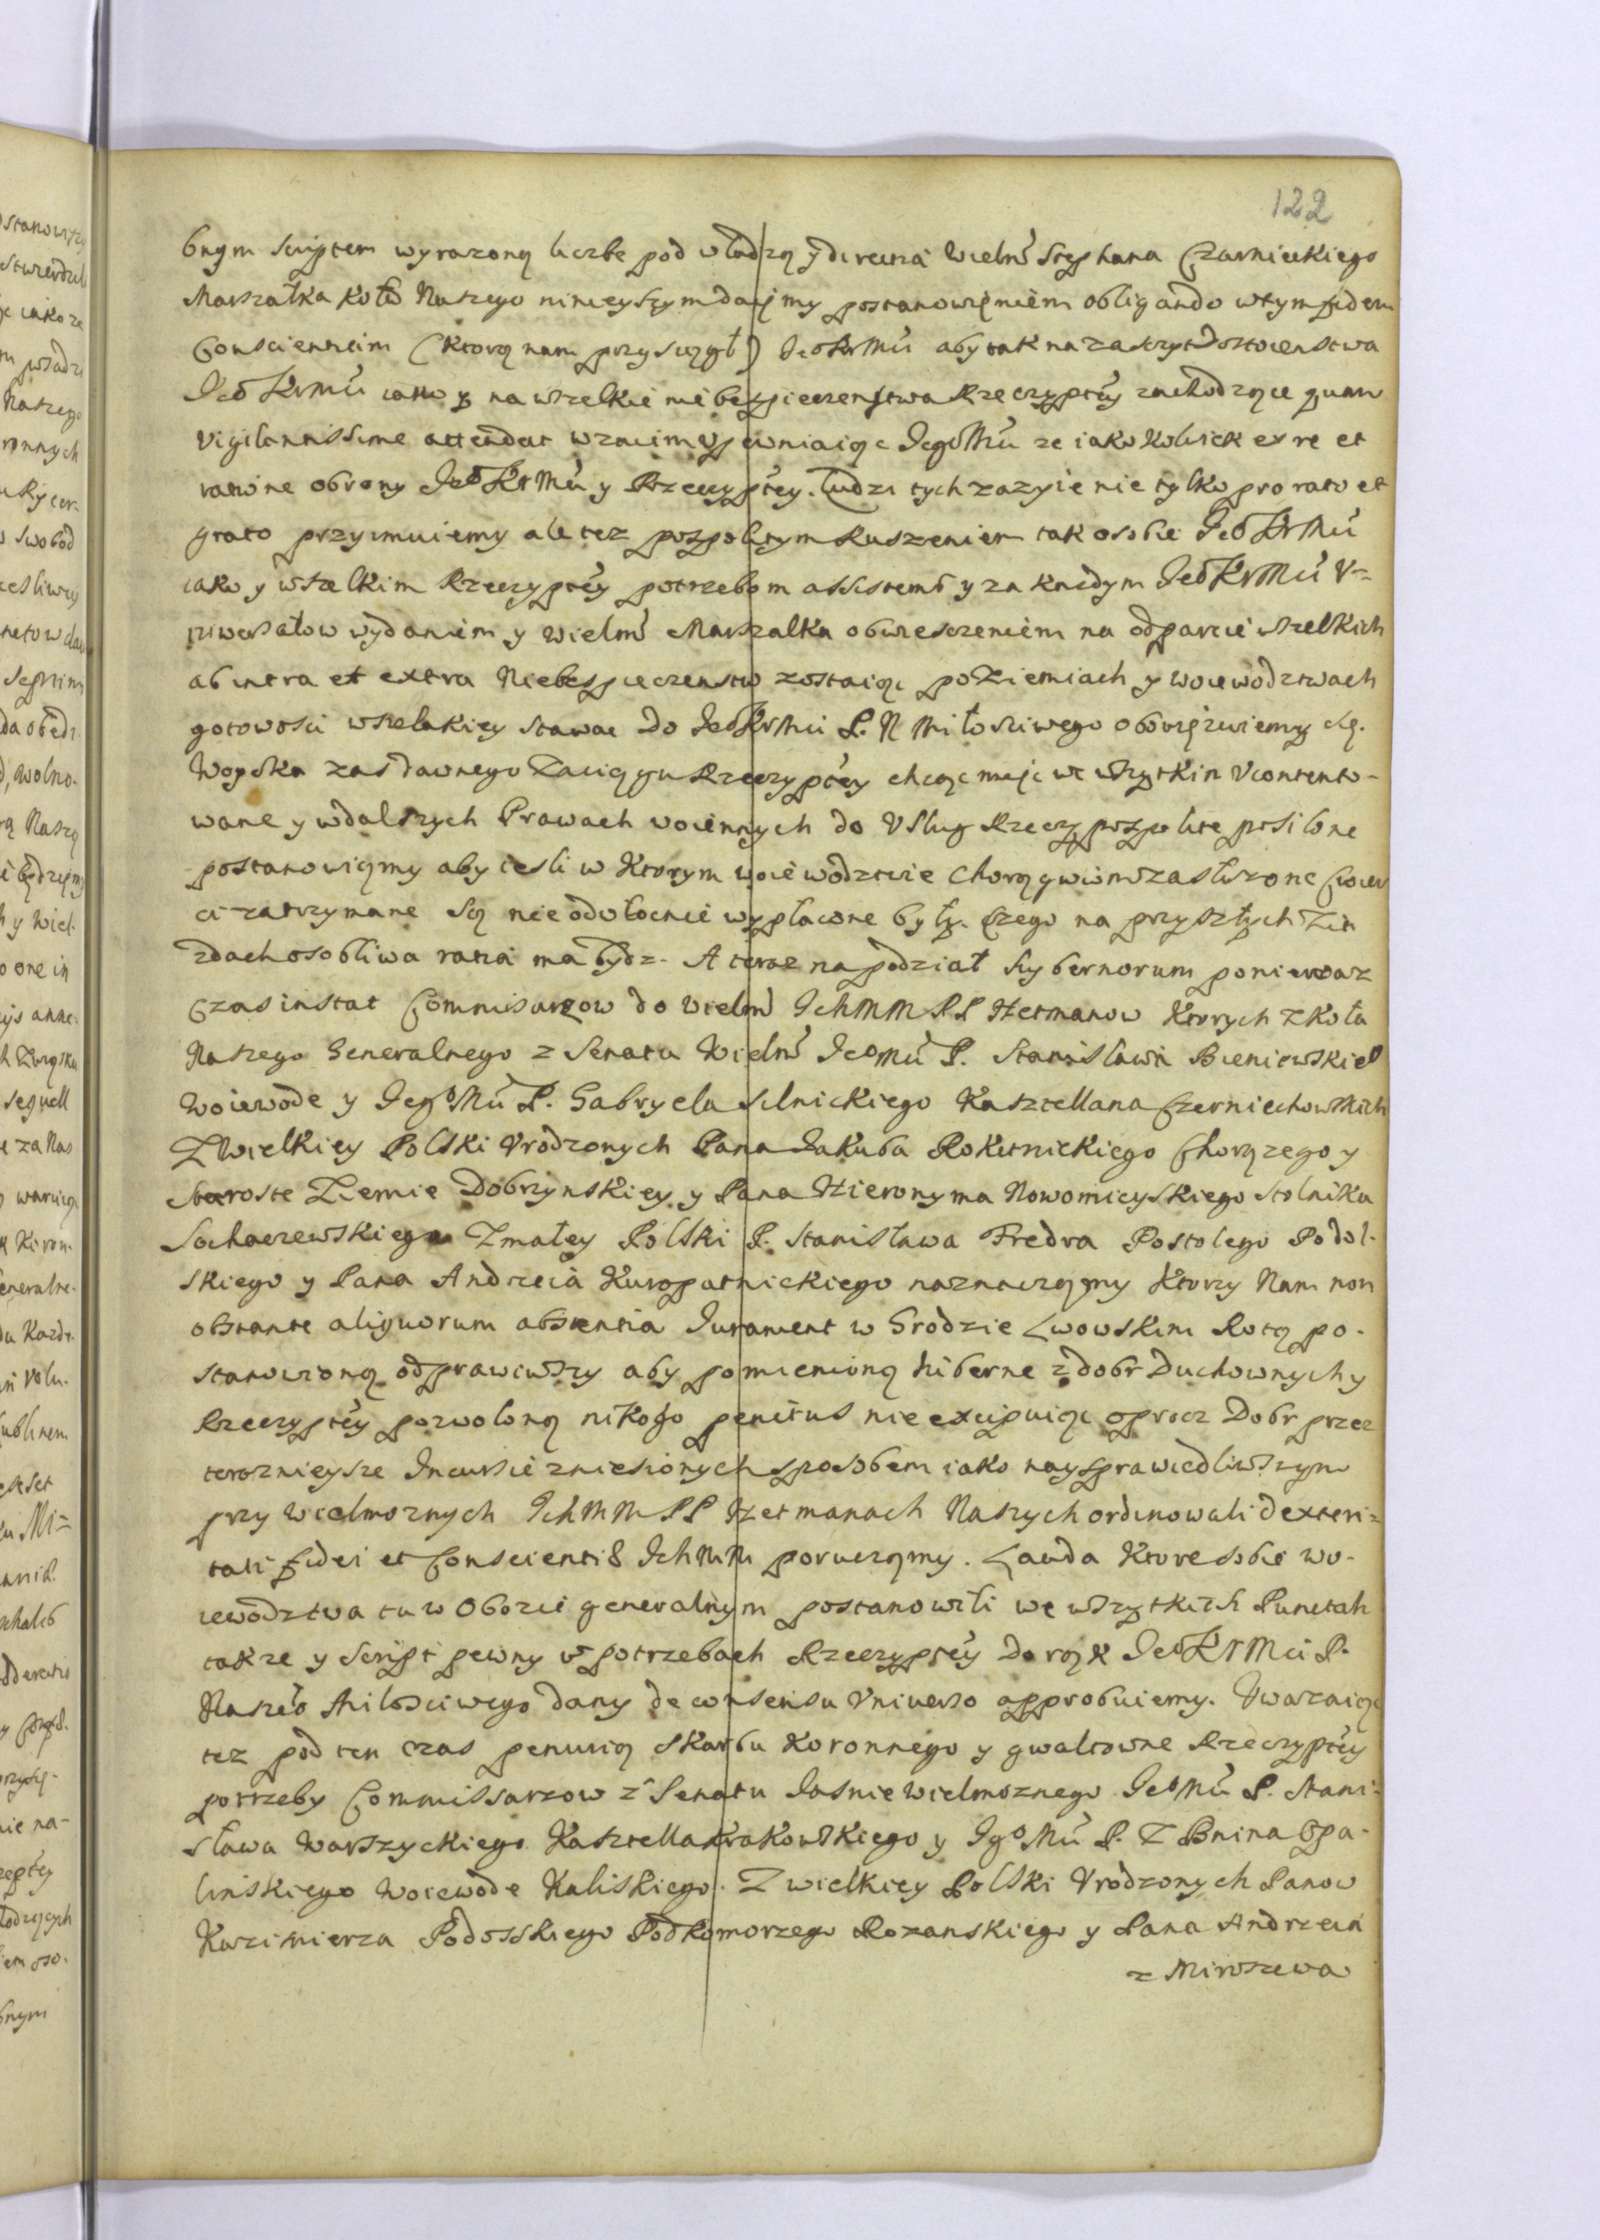 122
bnym scriptem wyrazoną liczbe pod władzą y direcią Wielmo Stephana Czarnieckiego
Marszałka koła Naszego ninieyszym daięmy postanowięniem obligando w tym fidem
Conscientiam (ktorą nam przysiągł) Jeo KrMci aby tak na zaszczyt Dostoienstwa
Jeo KrMci iako y na wszelkie niebezpieczenstwa Rzeczyptey zachodzące quam
vigilantissime attendat wzaiem vpewniaiąc JegoMci ze iakokolwiek ex re et
ratione obrony Jeo KrMci y Rzeczyptey. Ludzi tych zazyie nie tylko pro rato et
grato przyimuiemy ale tez pospolitym Ruszeniem tak osobie Jeo KrMci
iako y wszelkim Rzeczyptey potrzebom assistemo y za kazdym Jeo KrMci V-
niwersałow wydaniem y Wielmo Marszalka obwiesczeniem na odparcie wszelkich
ab intra et extra Niebespieczenstw zostaiąc po Ziemiach y Woiewodztwach
gotowosci wszelakiey stawac do Jeo KrMci P. N Miłosciwego obowięzuiemy się.
Woyska zas dawnego Zaciągu Rzeczyptey chcąc miec we wszytkim vcontento-
wane y w dalszych Prawach woiennych do Vsług Rzeczypospolite posilone
postanowiąmy aby iesli w ktorym woiewodztwie chorągwiom zasłuzone Cwier
ci zatrzymane są nieodwłocnie wypłacone były. Czego na przyszłych Zia
zdach osobliwa ratia ma bydz. A teraz na podział hybernorum poniewaz
Czas instat Commisarzow do Wielm IchMM PP Hetmanow ktorych z koła
Naszego Generalnego z Senatu Wielmo JeoMci P. Stanisława Bieniewskieo
Woiewode y JegoMci P. Gabryela Silnickiego Kasztellana Czerniechowskich
Z Wielkiey Polski Vrodzonych Pana Jakuba Rokitnickiego Chorązego y
Staroste Ziemie Dobrzynskiey y Pana Hieronyma Nowomieyskiego Stolnika
Sochaczewskiego Z małey Polski P. Stanisława Fredra Postolego Podol-
skiego y Pana Andrzeia Kuropatnickiego naznacząmy ktorzy Nam non
obstante aliquorum absentia Jurament w Grodzie Lwowskim Rotą po-
stanowioną odprawiwszy aby pomienioną hiberne z dobr Duchownych y
Rzeczyptey pozwoloną nikogo penitus nie excipuiąc oprocz Dobr przez
teroznieysze Incursie zniesionych sposobem iako naysprawiedliwszym
przy Wielmoznych IchMM PP Hetmanach Naszych ordinowali dexteri-
tati fidei et Conscientiæ IchMM porucząmy. Lauda ktore sobie wo-
iewodztwa tu w Obozie generalnym postanowiłi we wszytkich Punctah
takze y script pewny w potrzebach Rzeczyptey do rąk Jeo KrMci P.
Naszeo Miłosciwego dany de consensu Vniuerso approbuiemy. Vwazaiąc
tez pod ten czas penurią skarbu Koronnego y gwałtowne Rzeczyptey
potrzeby Commissarzow z Senatu Jasnie Wielmoznego JeoMci P. Stani-
sława Warszyckiego Kasztella Krakowskiego y JgoMci P. Z Bnina Opa-
linskiego Woiewode Kaliskiego. Z wielkiey Polski Vrodzonych Panow
Kazimierza Podosskiego Podkomorzego Rozanskiego y Pana Andrzeia
z Mirszewa